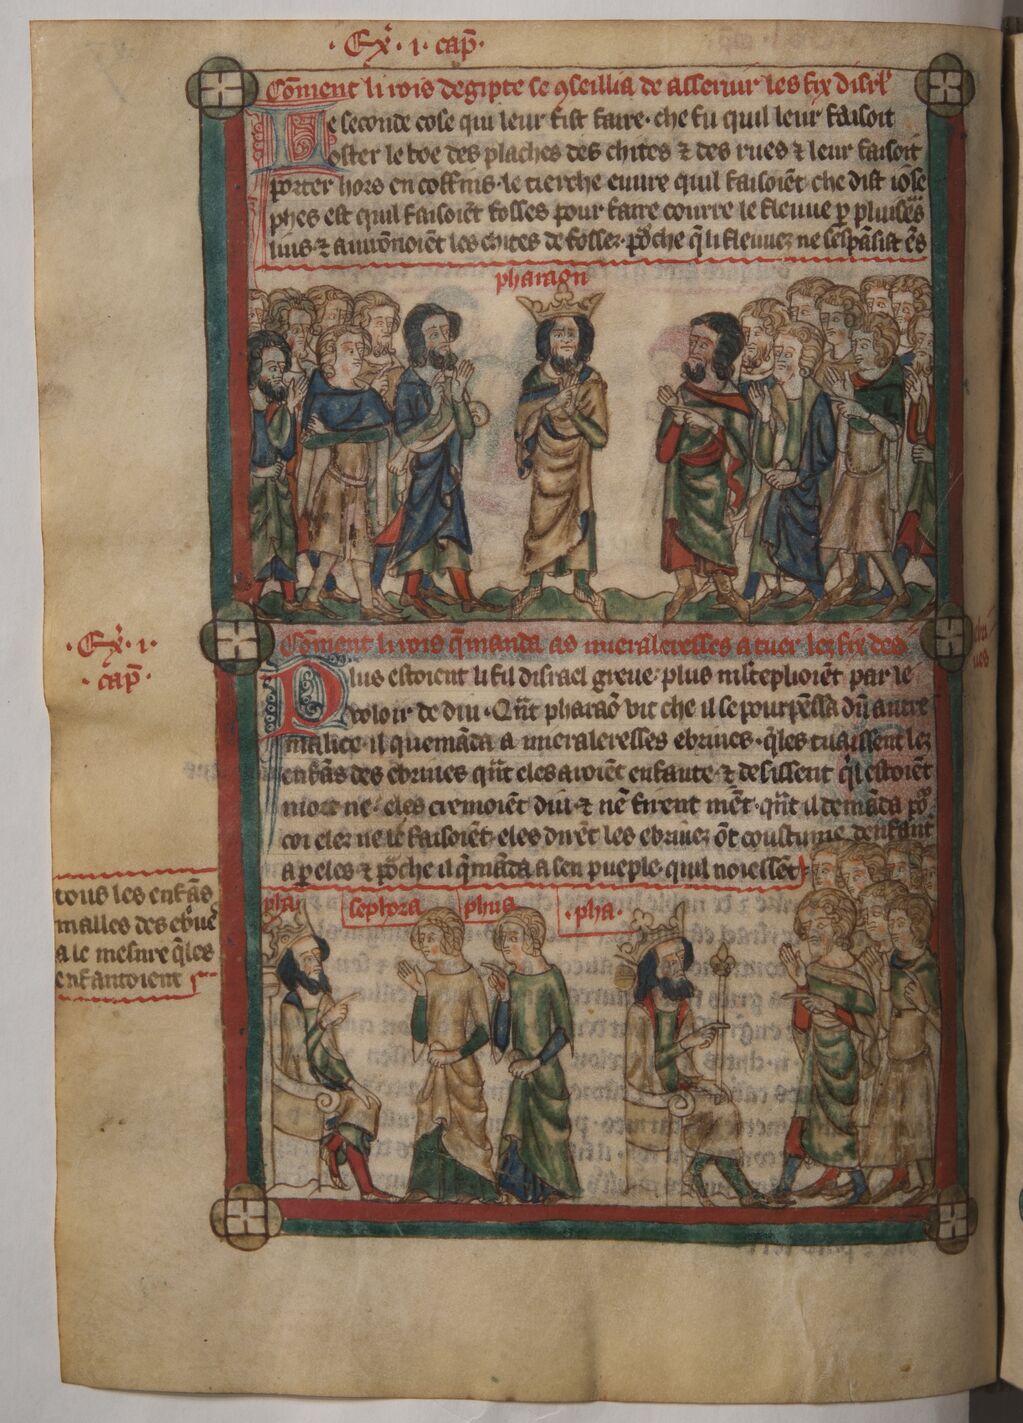 · Ex · i · cap̄ ·
Cõment li rois degipte se ꝯseillia de asseruir les fix disrł
Le seconde cose qui leur fist faire · che fu quil leur faisoit
oster le boe des plaches des chites ⁊ des rues ⁊ leur faisoit
porter hors en coffins · le tierche euure quil faisoiẽt che dist iose
phes est quil faisoiẽt fosses pour faire courre le fleuue ꝑ pluiseͬs
lius · ⁊ auirõnoiẽt les chites de fosses · pͦche q̃ li fleuuez ne sespãsist ẽs
pharaon
· Ex · i ·
· cap̄ ·
Cõment li rois q̃manda as miceraleresses a tuer lez fix des
Plus estoient li fil disrael greue · plus mlteplioient par le
voloir de diu · Qñt pharaõ vit che il se pourpẽssa dũ autre
malice · il quemãda a miceraleresses ebriues · q̃les tuaissent lez
enfãs des ebriues qñt eles auoiẽt enfante · ⁊ desissent q̃l estoiẽt
mort ne · eles cremoiẽt diu · ⁊ nẽ firent niẽt · qñt il demãda pͦ
coi elez ne le faisoiẽt · eles dirẽt les ebriuez õt coustume denfant̾
a ꝑ eles ⁊ pͦche il q̃mãda a sen pueple quil noiessẽt
tous les enfãs
malles des ebͥues
a le mesure q̃les
enfantoient
pha
sephora
phua
· pha ·